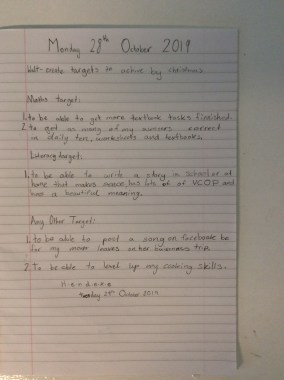 Monday 28th October 2019
Walt - create targets to achive by christmas
Maths target:
1. to be able to get more textbook tasks finished.
2. to get as many of my answers correct
in daily tens, worksheets and textbooks
Literacy target:
1. to be able to write a story in school or at
home that makes sence, has lots of of VCOP and
has a beautiful meaning.
Any Other Target:
1. to be able to post a song on facebook be
for my mum leaves on her buisness trip
2. To be able to level up my cooking skills.
29th October 2019